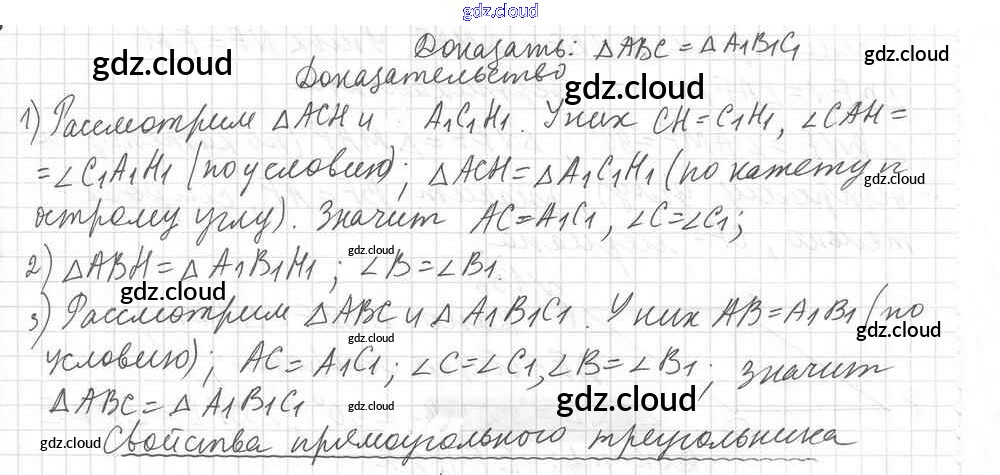 gdz.cloud
Доказать: △ABC = △A1B1C1
gdz.cloud
Доказательство
gdz.cloud
1) Рассмотрим △ACH и A1C1H1. У них CH = C1H1, ∠CAH =
= ∠C1A1H1 (по условию); △ACH = △A1C1H1 (по катету и
gdz.cloud
острому углу). Значит AC = A1C1, ∠C = ∠C1;
gdz.cloud
2) △ABH = △A1B1H1; ∠B = ∠B1.
gdz.cloud
3) Рассмотрим △ABC и △A1B1C1. У них AB = A1B1 (по
gdz.cloud
условию); AC = A1C1; ∠C = ∠C1, ∠B = ∠B1; значит
△ABC = △A1B1C1
gdz.cloud
gdz.cloud
gdz.cloud
Свойства прямоугольного треугольника
gdz.cloud